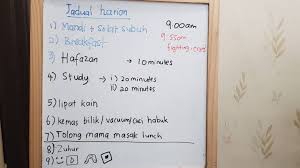 Jadual harian
1) Mandi + solat subuh
9.00am
2) Breakfast
9.55am
3) Hafazan → 10 minutes
4) Study → 1) 20 minutes
2) 20 minutes
5) lipat kain
6) kemas bilik/vacuum/cuci habuk
7) Tolong mama masak lunch
8) Zuhur
9)